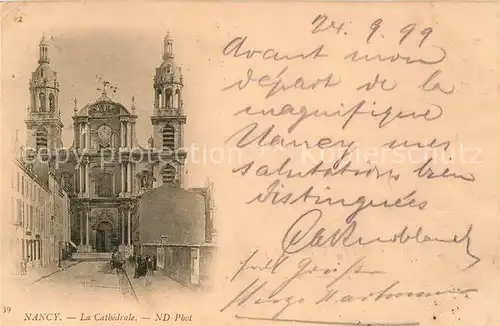 24. 9. 99
Avant mon
départ de la
magnifique
Nancy mes
salutations bien
distinguées
19
NANCY. — La Cathédrale. — ND Phot